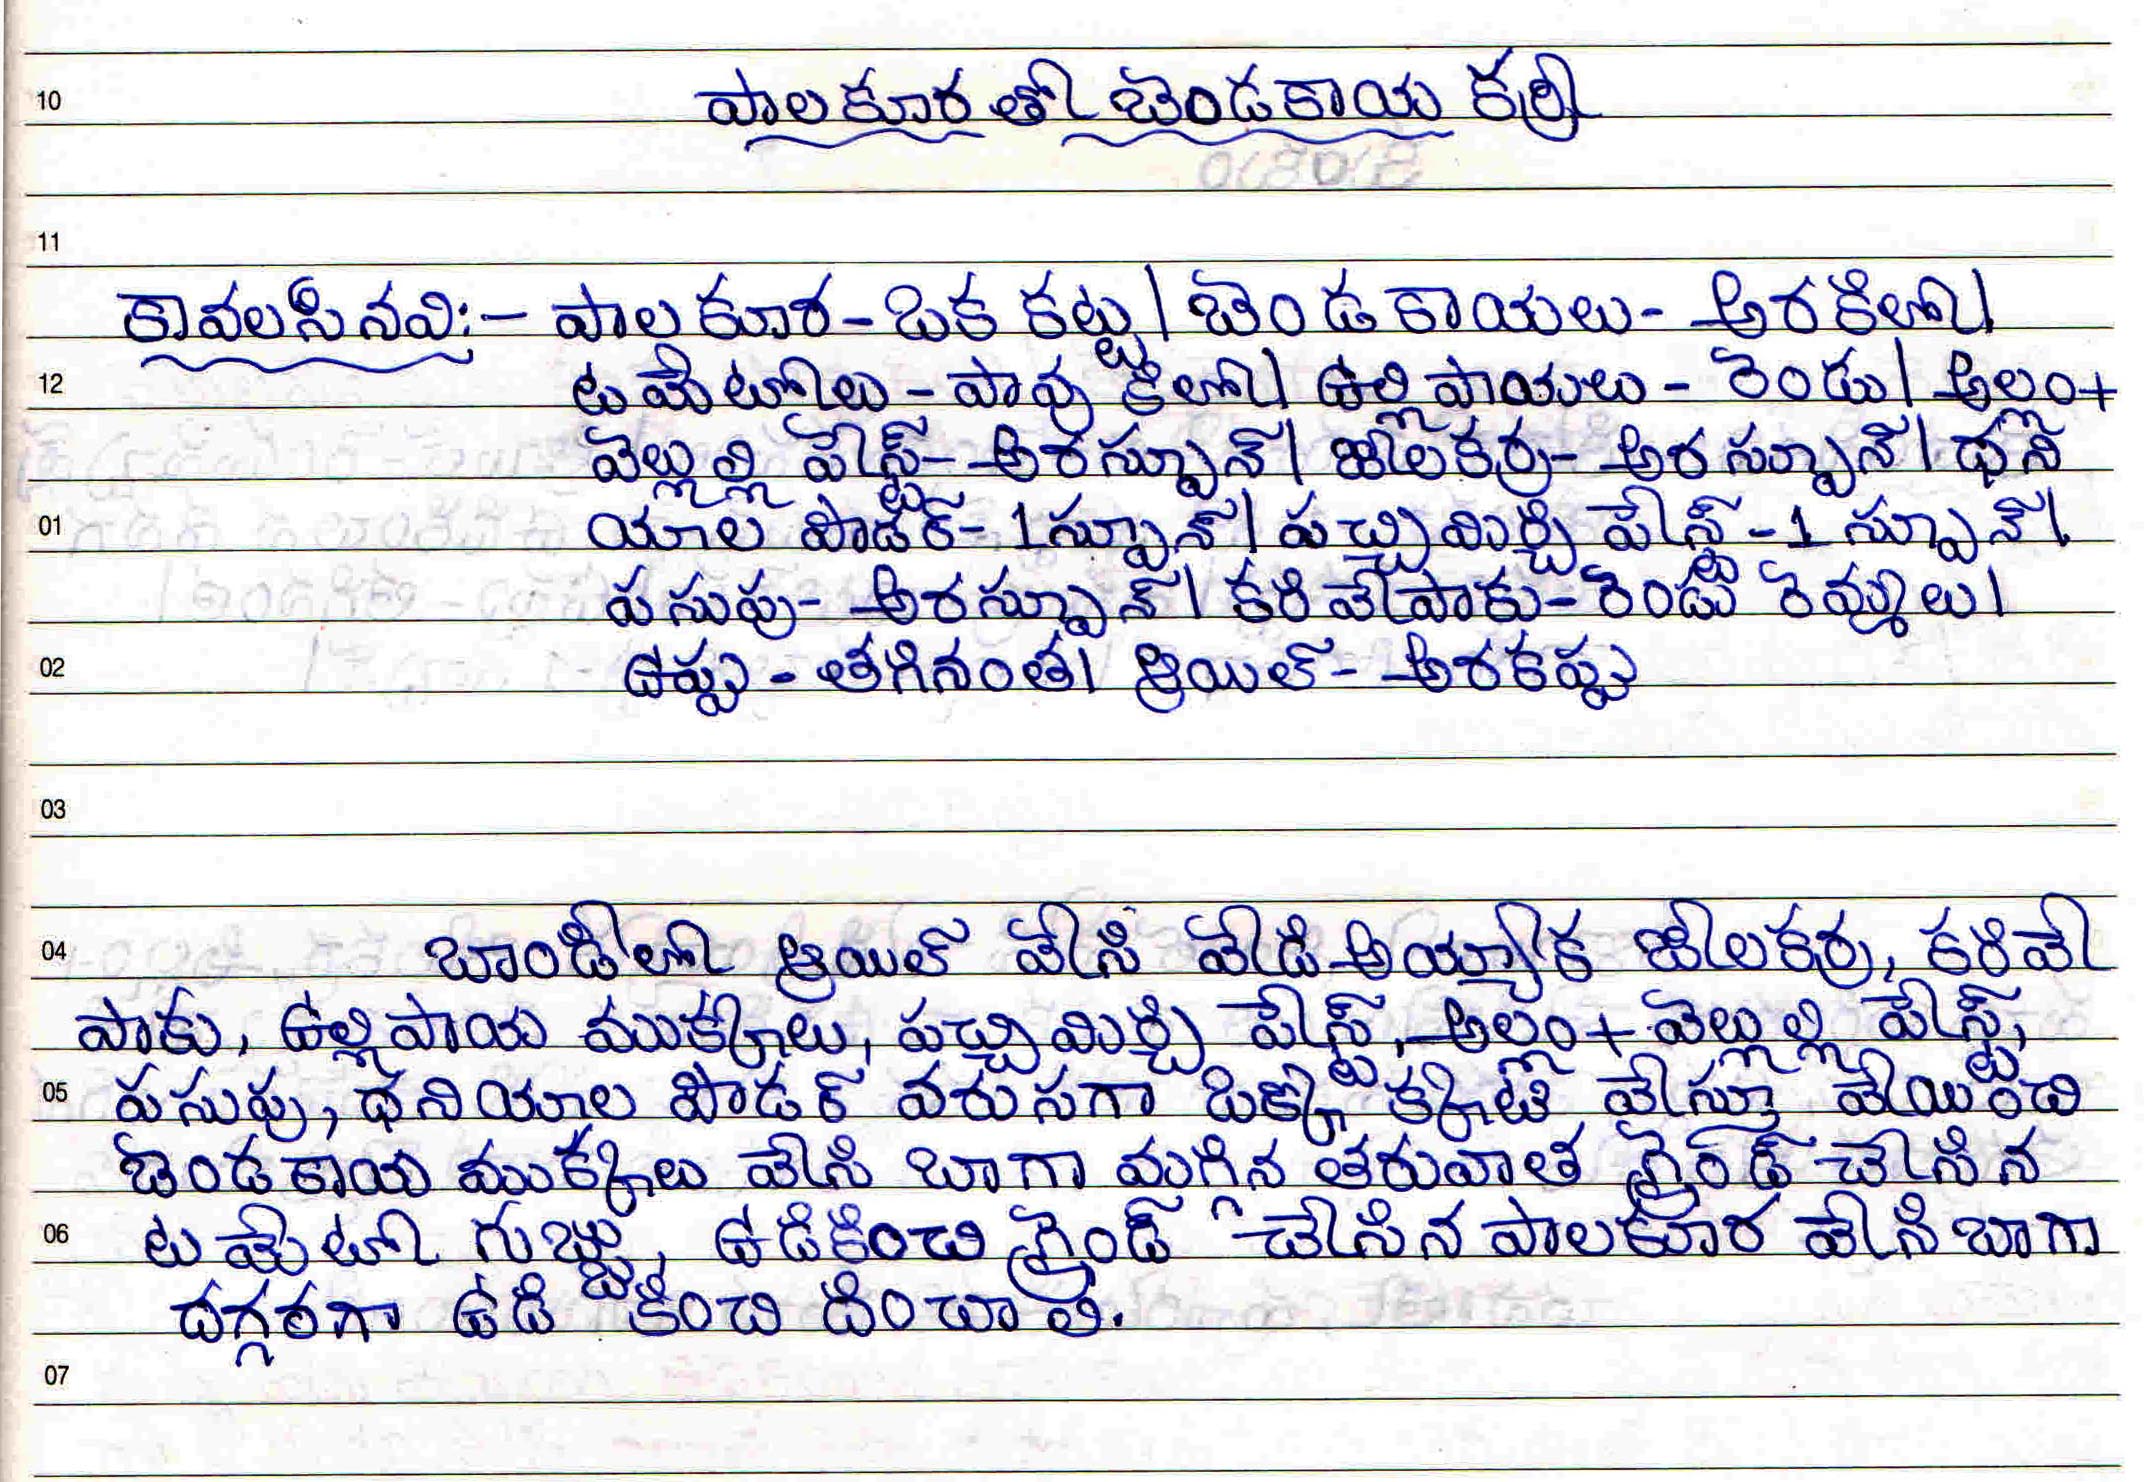 10 పాలకూరతో బెండకాయ కర్రీ
11
కావలసినవి:- పాలకూర-ఒక కట్ట| బెండకాయలు- అరకిలో|
12 టమేటోలు-పావు కిలో| ఉల్లిపాయలు - రెండు| అల్లం+
వెల్లుల్లి పేస్ట్-అరస్పూన్| జీలకర్ర- అర స్పూన్| ధని
01 యాల పౌడర్-1స్పూన్| పచ్చిమిర్చి పేస్ట్-1 స్పూన్|
పసుపు- అరస్పూన్| కరివేపాకు-రెండు రెమ్మలు|
02 ఉప్పు - తగినంత| ఆయిల్- అరకప్పు
03
04 బాండీలో ఆయిల్ వేసి వేడి అయ్యాక జీలకర్ర, కరివే
పాకు, ఉల్లిపాయ ముక్కలు, పచ్చిమిర్చి పేస్ట్, అల్లం+వెల్లుల్లి పేస్ట్,
05 పసుపు, ధనియాల పౌడర్ వరుసగా ఒక్కొక్కటి వేస్తూ వేయించి
బెండకాయ ముక్కలు వేసి బాగా మగ్గిన తరువాత గ్రైండ్ చేసిన
06 టమేటో గుజ్జు, ఉడికించి గ్రైండ్ చేసిన పాలకూర వేసి బాగా
దగ్గరగా ఉడికించి దించాలి.
07